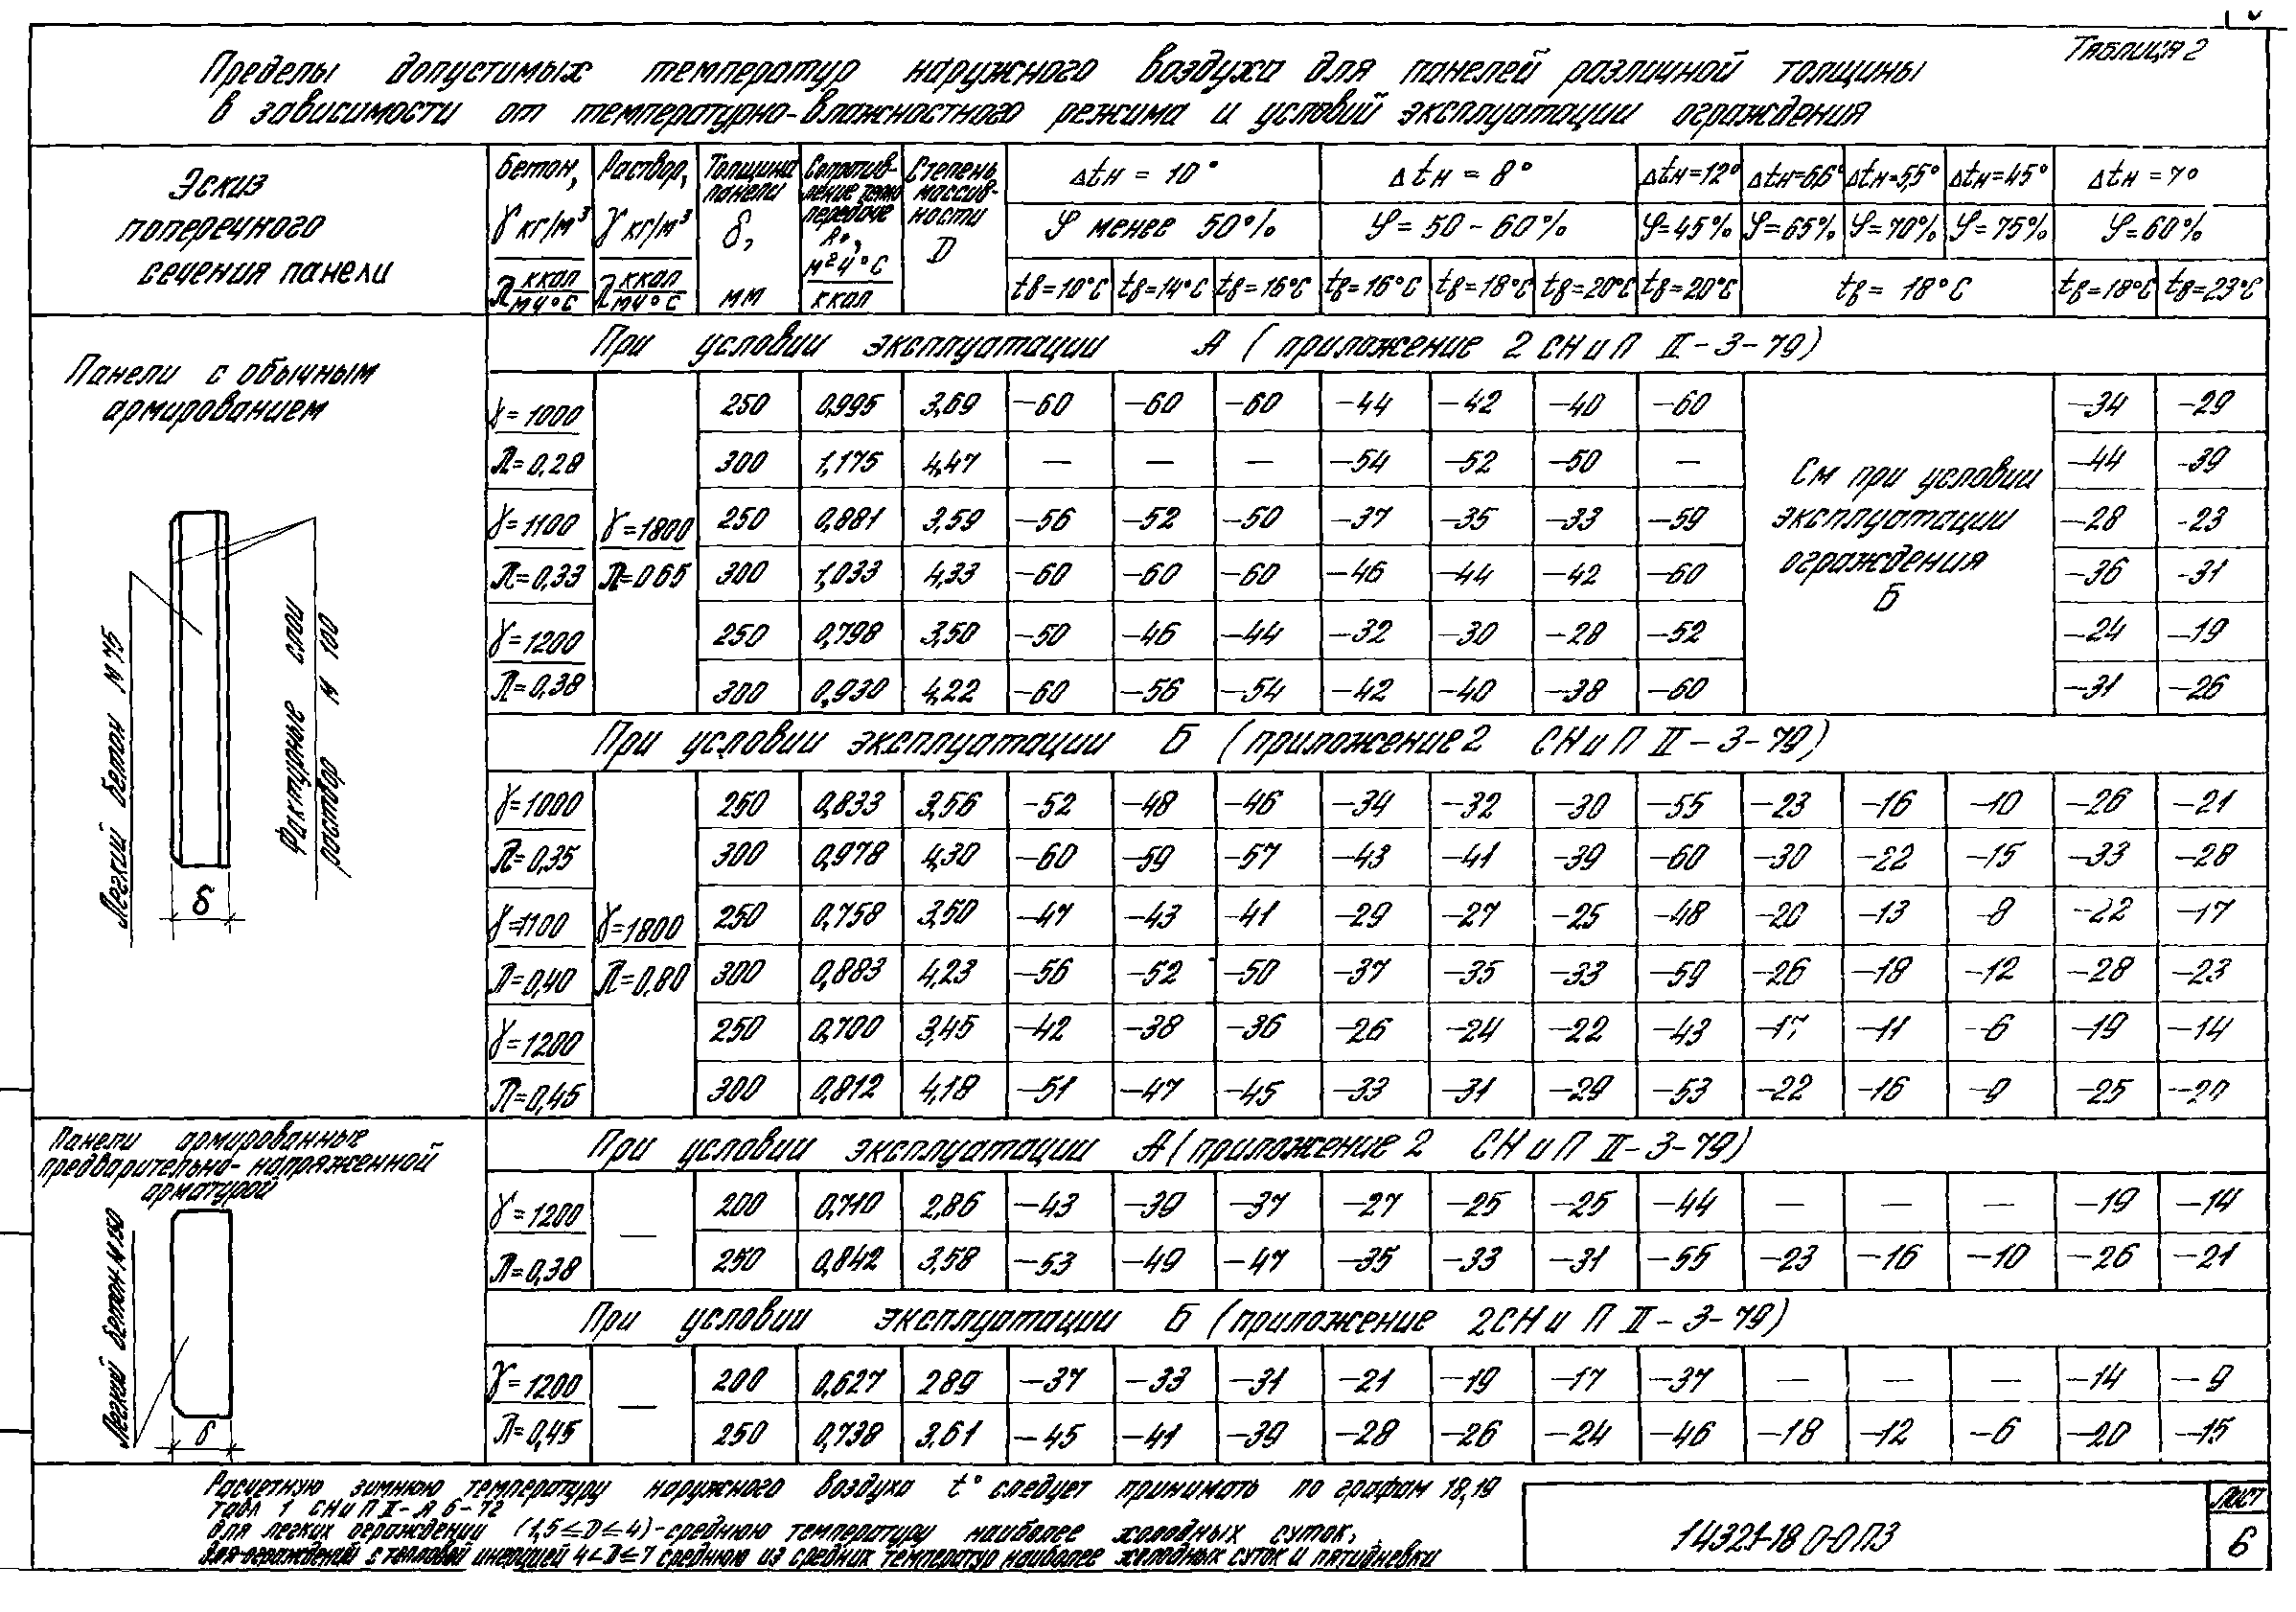 Таблица 2
Пределы допустимых температур наружного воздуха для панелей различной толщины
в зависимости от температурно-влажностного режима и условий эксплуатации ограждения
Эскиз поперечного сечения панели
Бетон, γ кг/м³ λ ккал/мч°С
Раствор, γ кг/м³ λ ккал/мч°С
Толщина панели δ, мм
Сопротив-ление тепло передаче R₀, м²ч°С/ккал
Степень массив-ности D
Δtн = 10° Δtн = 8° Δtн=12° Δtн=6,6° Δtн=5,5° Δtн=45° Δtн = 7°
φ менее 50% φ = 50 - 60% φ=45% φ=65% φ=70% φ=75% φ=60%
tв=10°С tв=14°С tв=16°С tв=16°С tв=18°С tв=20°С tв=20°С tв = 18°С tв=18°С tв=23°С
Панели с обычным
армированием
Легкий бетон М 75
Фактурные слои
раствор М 100
δ
При условии эксплуатации А (приложение 2 СНиП II-3-79)
γ=1000 250 0,995 3,69 -60 -60 -60 -44 -42 -40 -60 -34 -29
λ=0,28 300 1,175 4,47 — — — -54 -52 -50 — -44 -39
γ=1100 γ=1800 250 0,881 3,59 -56 -52 -50 -37 -35 -33 -59 -28 -23
λ=0,33 λ=065 300 1,033 4,33 -60 -60 -60 -46 -44 -42 -60 -36 -31
γ=1200 250 0,798 3,50 -50 -46 -44 -32 -30 -28 -52 -24 -19
λ=0,38 300 0,930 4,22 -60 -56 -54 -42 -40 -38 -60 -31 -26
См при условии
эксплуатации
ограждения
Б
При условии эксплуатации Б (приложение 2 СНиП II-3-79)
γ=1000 250 0,833 3,56 -52 -48 -46 -34 -32 -30 -55 -23 -16 -10 -26 -21
λ=0,35 300 0,978 4,30 -60 -59 -57 -43 -41 -39 -60 -30 -22 -15 -33 -28
γ=1100 γ=1800 250 0,758 3,50 -47 -43 -41 -29 -27 -25 -48 -20 -13 -8 -22 -17
λ=0,40 λ=0,80 300 0,883 4,23 -56 -52 -50 -37 -35 -33 -59 -26 -18 -12 -28 -23
γ=1200 250 0,700 3,45 -42 -38 -36 -26 -24 -22 -43 -17 -11 -6 -19 -14
λ=0,45 300 0,812 4,18 -51 -47 -45 -33 -31 -29 -53 -22 -16 -9 -25 -20
Панели армированные
предварительно-напряженной
арматурой
Легкий бетон М 150
δ
При условии эксплуатации А (приложение 2 СНиП II-3-79)
γ=1200 — 200 0,710 2,86 -43 -39 -37 -27 -25 -25 -44 — — — -19 -14
λ=0,38 250 0,842 3,58 -53 -49 -47 -35 -33 -31 -55 -23 -16 -10 -26 -21
При условии эксплуатации Б (приложение 2 СНиП II-3-79)
γ=1200 — 200 0,627 289 -37 -33 -31 -21 -19 -17 -37 — — — -14 -9
λ=0,45 250 0,738 3,61 -45 -41 -39 -28 -26 -24 -46 -18 -12 -6 -20 -15
Расчетную зимнюю температуру наружного воздуха t° следует принимать по графам 18,19
табл 1 СНиП II-А 6-72
для легких ограждений (1,5≤D≤4)-среднюю температуру наиболее холодных суток,
для ограждений с тепловой инерцией 4<D≤7 среднюю из средних температур наиболее холодных суток и пятидневки
1432.1-18 0-0 ПЗ
Лист
6